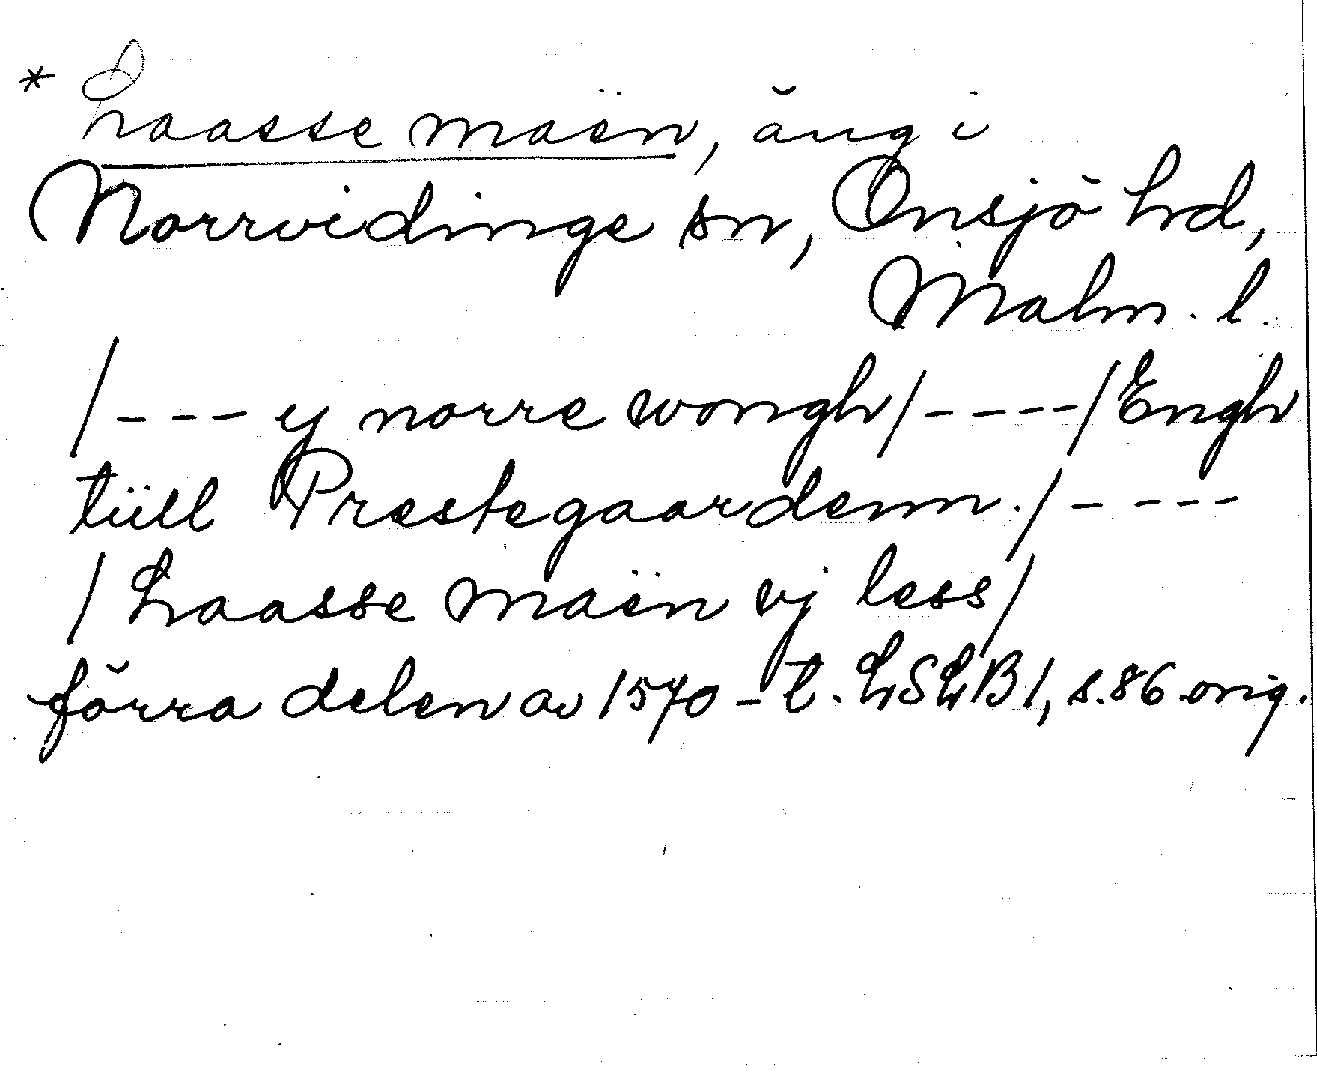 * Laasse maën, äng i
Norrvidinge sn, Onsjö hd,
Malm. l.
/--- y norre wongh/----/Engh
tiill Prestegaardenn./----
/Laasse maën vj less/
förra delen av 1570-t. LSLB I, s.86 orig.